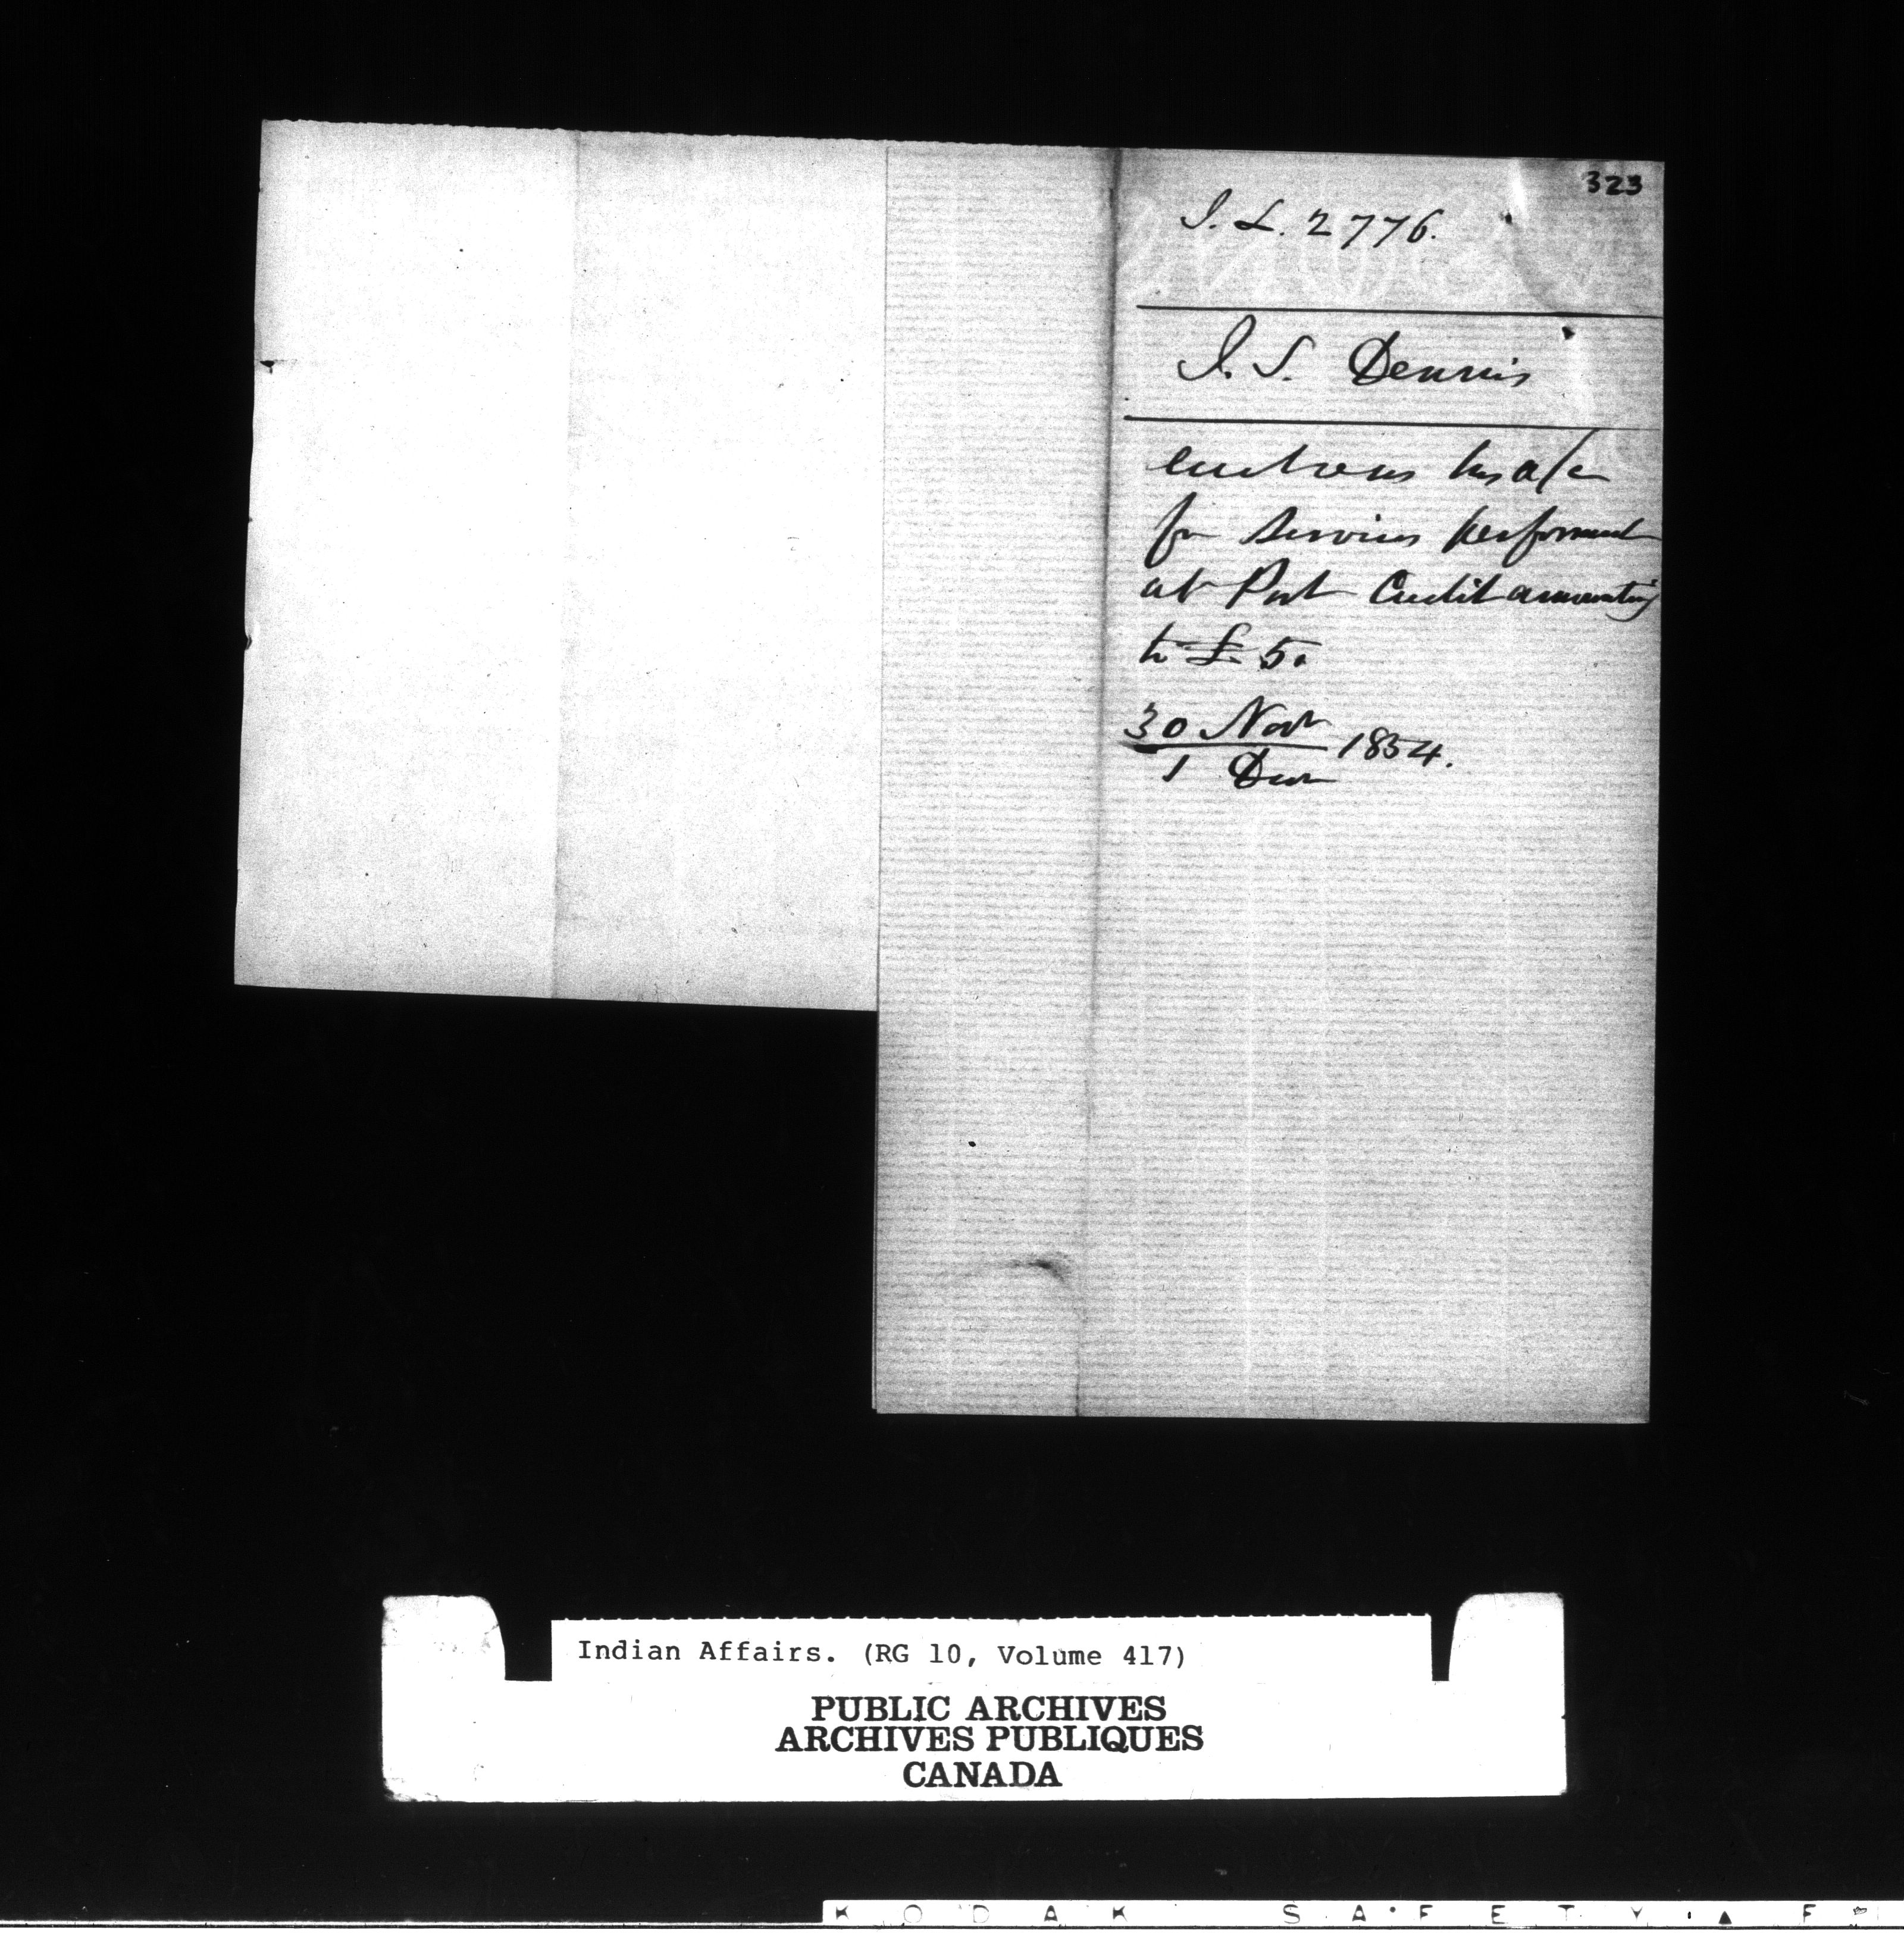 323
I. L. 2776.
J. S. Dennis
encloses his a/c
for Services performed
at Port Credit amounting
to £ 5.
30 Novr
1854.
1 Decr
Indian Affairs. (RG 10, Volume 417)
PUBLIC ARCHIVES
ARCHIVES PUBLIQUES
CANADA
KODAK SAFETY ▲ F